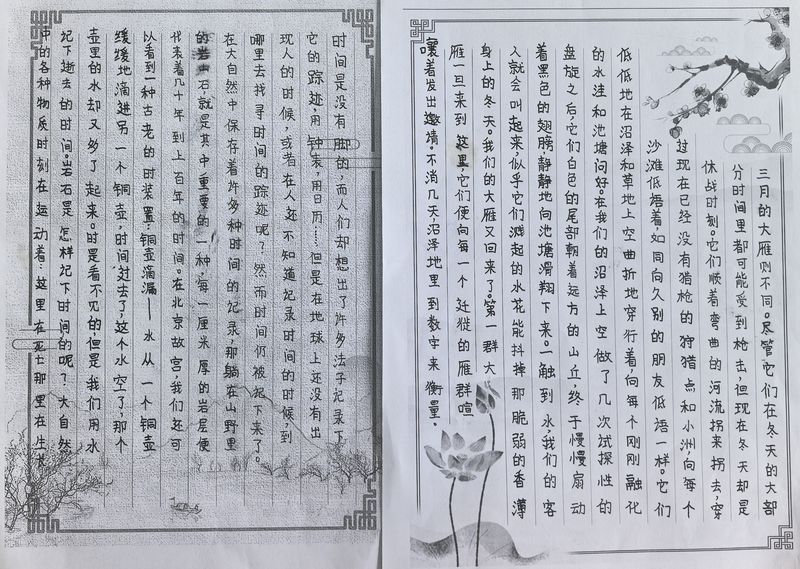 三月的大雁则不同。尽管它们在冬天的大部
分时间里都可能受到枪击，但现在冬天却是
休战时刻。它们顺着弯曲的河流拐来拐去，穿
过现在已经没有猎枪的狩猎点和小洲，向每个
沙滩低语着，如同向久别的朋友低语一样。它们
低低地在沼泽和草地上空曲折地穿行着，向每个刚刚融化
的水洼和池塘问好。在我们的沼泽上空做了几次试探性的
盘旋之后，它们白色的尾部朝着远方的山丘，终于慢慢扇动
着黑色的翅膀，静静地向池塘滑翔下来。一触到水，我们的客
人就会叫起来，似乎它们溅起的水花能抖掉那脆弱的香薄
身上的冬天。我们的大雁又回来了。第一群大
雁一旦来到这里，它们便向每一个迁徙的雁群喧
嚷着发出邀请。不消几天沼泽地里到数字来衡量。
时间是没有脚的，而人们却想出了许多法子记录下
它的踪迹，用钟表，用日历……但是在地球上还没有出
现人的时候，或者在人还不知道记录时间的时候，到
哪里去找寻时间的踪迹呢？然而时间仍被记下来了。
在大自然中保存着许多种时间的记录，那躺在山野里
的岩石，就是其中重要的一种，每一厘米厚的岩层便
代表着几十年到上百年的时间。在北京故宫，我们还可
以看到一种古老的时装置：铜壶滴漏——水从一个铜壶
缓缓地滴进另一个铜壶，时间过去了，这个水空了，那个
壶里的水却又多了起来。时是看不见的，但是我们用水
记下逝去的时间。岩石是怎样记下时间的呢？大自然
中的各种物质时刻在运动着：这里在死亡那里在生长